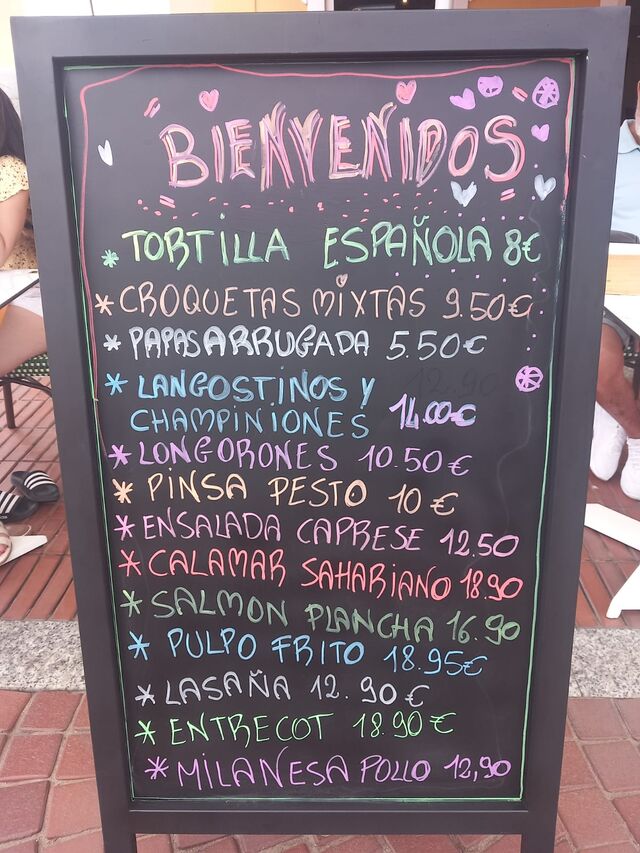 BIENVENIDOS
* TORTILLA ESPAÑOLA 8€
* CROQUETAS MIXTAS 9.50€
* PAPAS ARRUGADA 5.50€
* LANGOSTINOS Y
CHAMPINIONES 14.00€
* LONGORONES 10.50€
* PINSA PESTO 10€
* ENSALADA CAPRESE 12.50
* CALAMAR SAHARIANO 18.90
* SALMON PLANCHA 16.90
* PULPO FRITO 18.95€
* LASAÑA 12.90€
* ENTRECOT 18.90€
* MILANESA POLLO 12,90